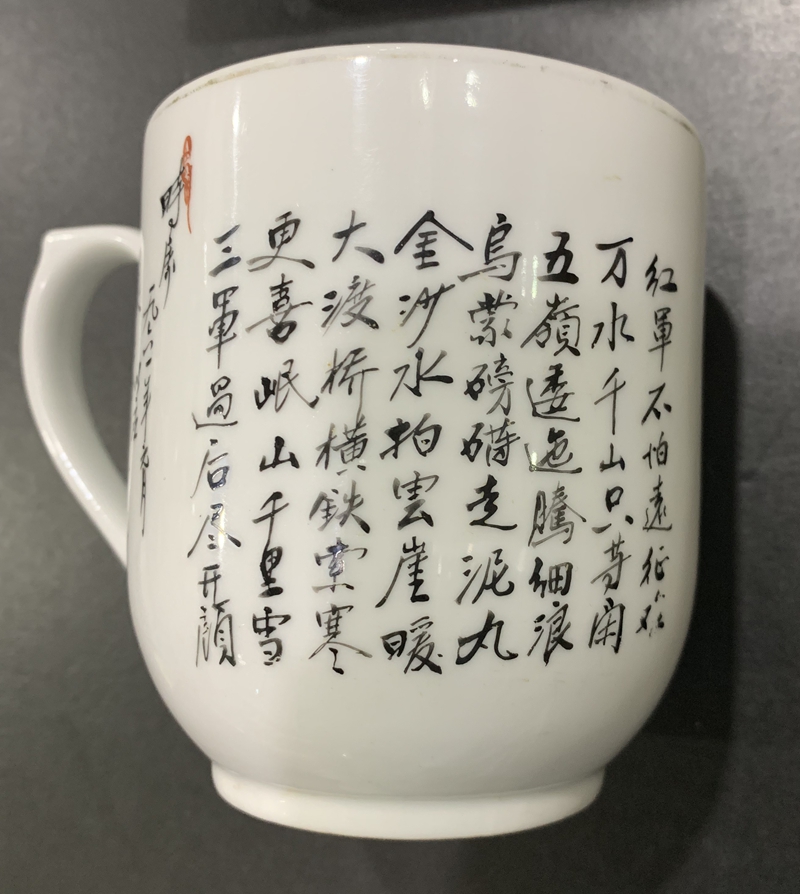 紅軍不怕遠征难
万水千山只等闲
五嶺逶迤騰細浪
烏蒙磅礴走泥丸
金沙水拍雲崖暖
大渡桥横鉄索寒
更喜岷山千里雪
三軍過后尽开顏
時
年元月